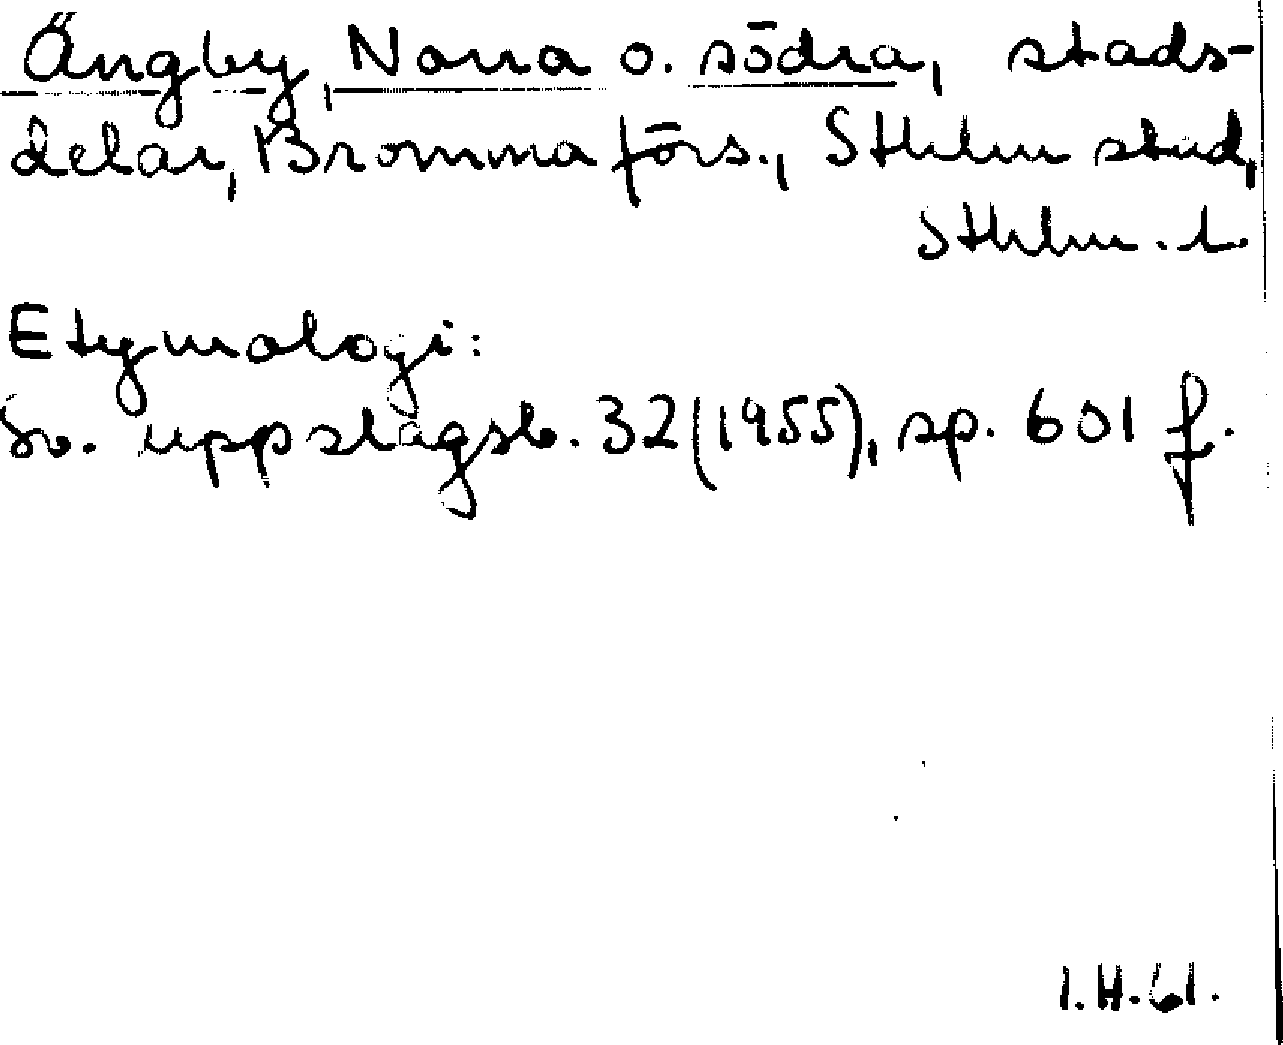 Ängby, Norra o. södra, stads-
delar, Bromma förs., Sthlm stad,
Sthlm. l.
Etymologi:
Sv. uppslagsb. 32 (1955), sp. 601 f.
I.H.61.